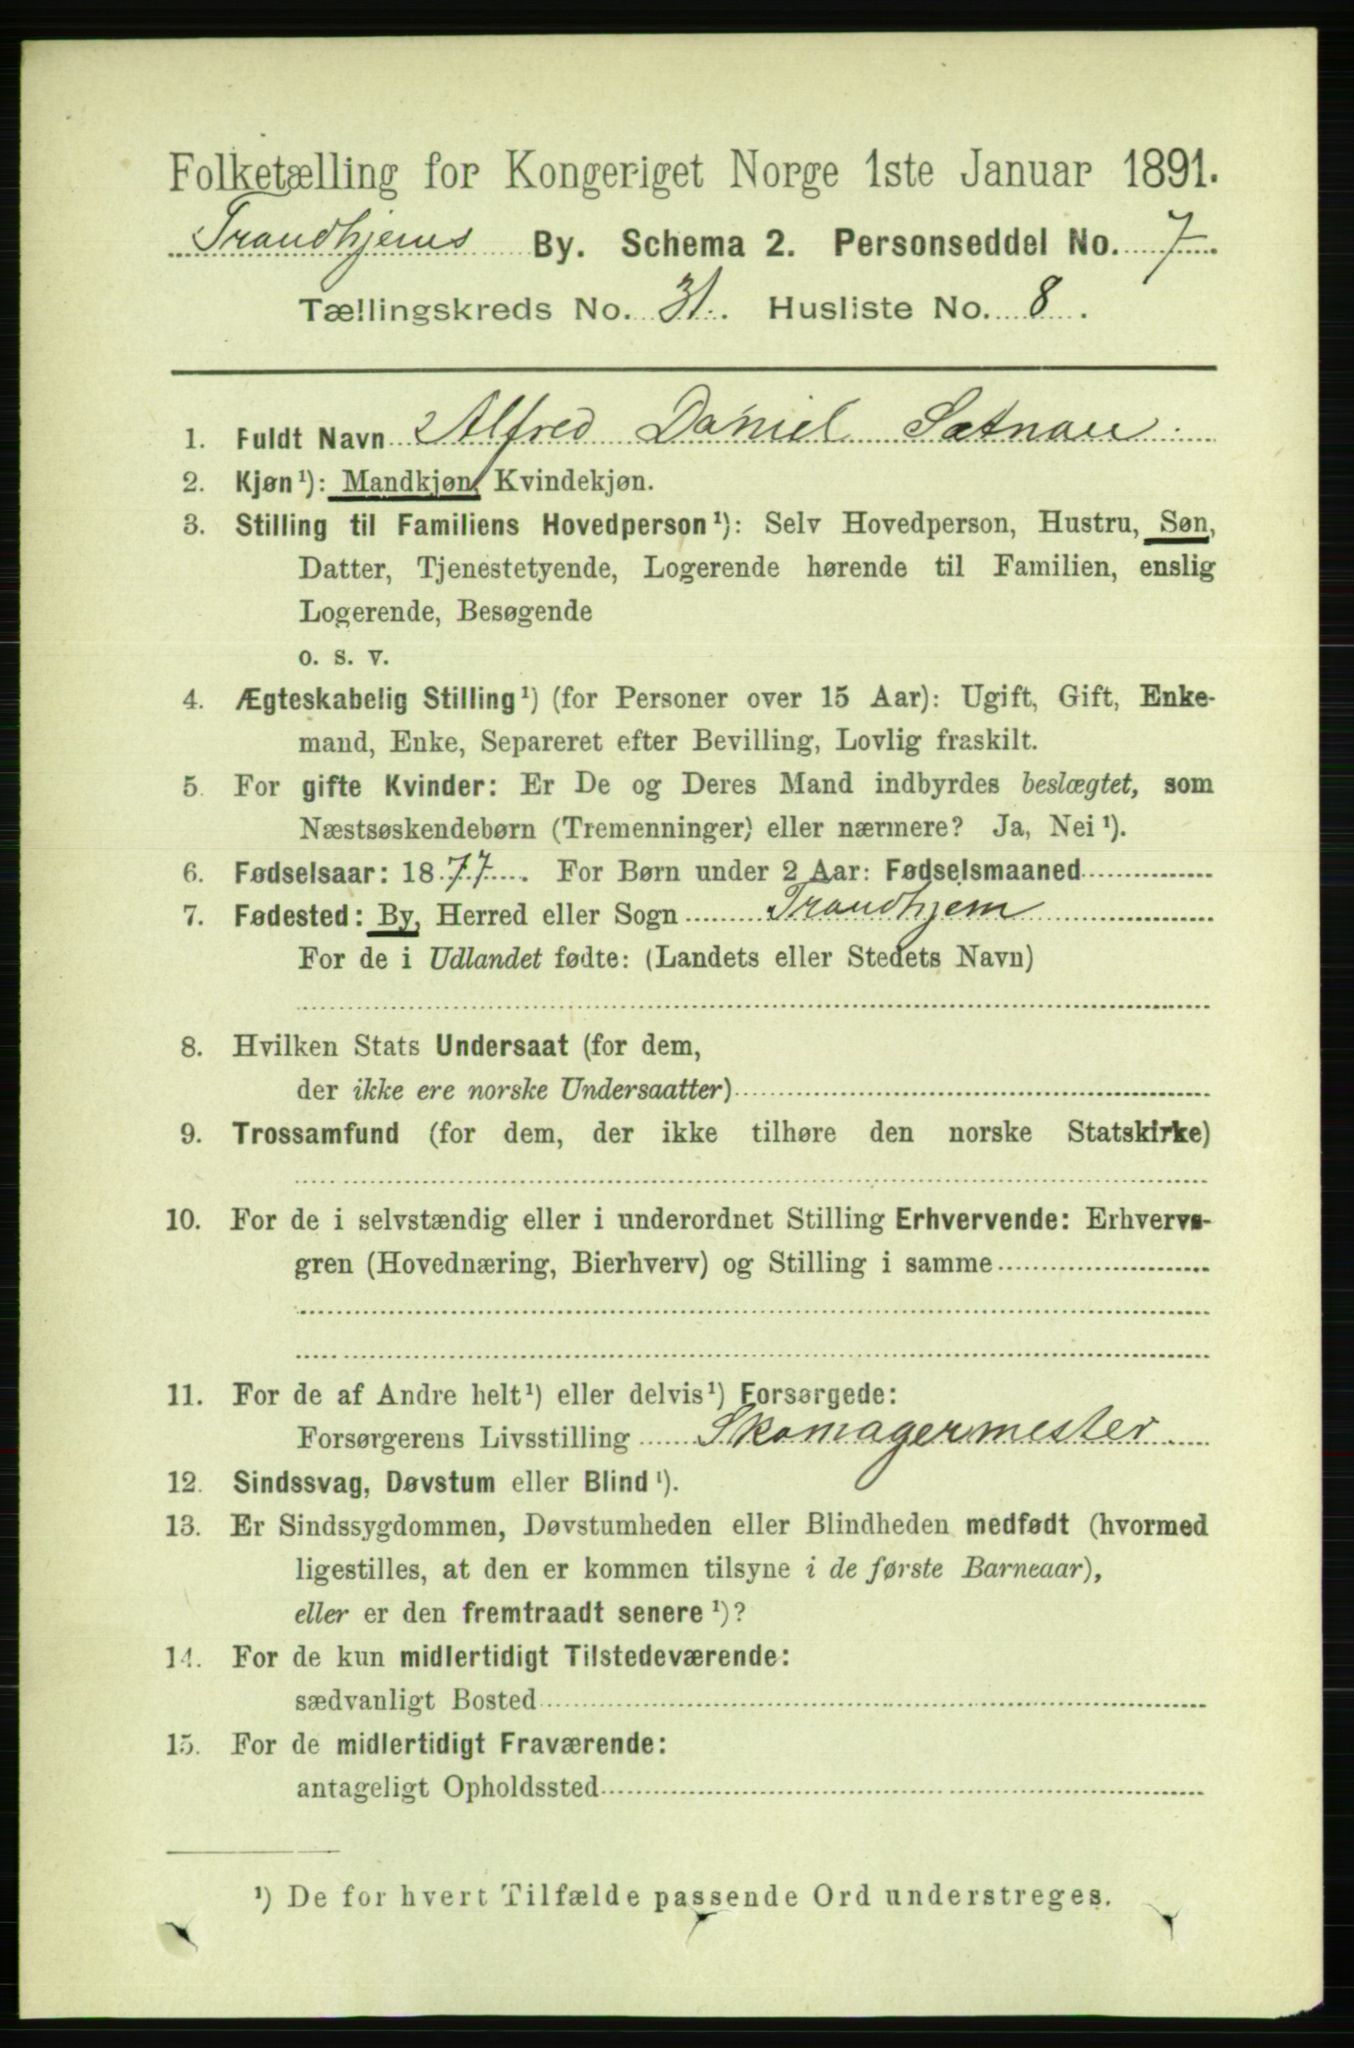 Folketælling for Kongeriget Norge 1ste Januar 1891.
Trondhjems By. Schema 2. Personseddel No. 7.
Tællingskreds No. 31. Husliste No. 8.
1. Fuldt Navn Alfred Daniel Sætnan
2. Kjøn¹): Mandkjøn, Kvindekjøn.
3. Stilling til Familiens Hovedperson¹): Selv Hovedperson, Hustru, Søn,
Datter, Tjenestetyende, Logerende hørende til Familien, enslig
Logerende, Besøgende
o. s. v.
4. Ægteskabelig Stilling¹) (for Personer over 15 Aar): Ugift, Gift, Enke-
mand, Enke, Separeret efter Bevilling, Lovlig fraskilt.
5. For gifte Kvinder: Er De og Deres Mand indbyrdes beslægtet, som
Næstsøskendebørn (Tremenninger) eller nærmere? Ja, Nei¹).
6. Fødselsaar: 1877. For Børn under 2 Aar: Fødselsmaaned
7. Fødested: By, Herred eller Sogn Trondhjem
For de i Udlandet fødte: (Landets eller Stedets Navn)
8. Hvilken Stats Undersaat (for dem,
der ikke ere norske Undersaatter)
9. Trossamfund (for dem, der ikke tilhøre den norske Statskirke)
10. For de i selvstændig eller i underordnet Stilling Erhvervende: Erhvervs-
gren (Hovednæring, Bierhverv) og Stilling i samme
11. For de af Andre helt¹) eller delvis¹) Forsørgede:
Forsørgerens Livsstilling Skomagermester
12. Sindssvag, Døvstum eller Blind¹).
13. Er Sindssygdommen, Døvstumheden eller Blindheden medfødt (hvormed
ligestilles, at den er kommen tilsyne i de første Barneaar),
eller er den fremtraadt senere¹)?
14. For de kun midlertidigt Tilstedeværende:
sædvanligt Bosted
15. For de midlertidigt Fraværende:
antageligt Opholdssted
¹) De for hvert Tilfælde passende Ord understreges.